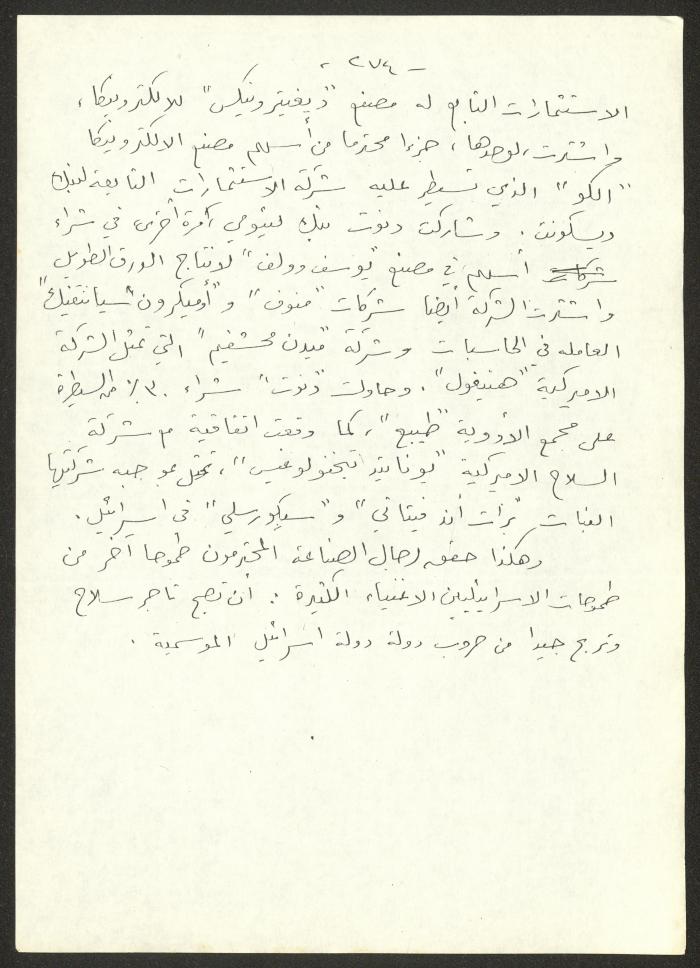 - ٢٧٤ -
الاستثمارات التابع له مصنع "ديفيترونيكس" للالكترونيكا،
واشترت، لوحدها، جزءا محترما من أسهم مصنع الالكترونيكا
"الكو" الذي تسيطر عليه شركة الاستثمارات التابعة لبنك
ديسكونت. وشاركت دنوت بنك لئومي، مرة أخرى، في شراء
أسهم في مصنع "يوسف وولف" لانتاج الورق الطويل
واشترت الشركة أيضا شركات "منوف" و"أوميكرون سيانتفيك"
العامله في الحاسبات وشركة "ميدن محشفيم" التي تمثل الشركة
الاميركية "هنيفول". وحاولت "دنوت" شراء ٣٠٪ من السيطرة
على مجمع الأدوية "طيبع"، كما وقعت اتفاقية مع شركة
السلاح الاميركية "يونايتد تيخنولوغيس"، تمثل بموجبه شركتيها
البنات "برات أند فيتاني" و"سيكورسلي" في اسرائيل.
وهكذا حقق رجال الصناعة المحترمون طموحا آخر من
طموحات الاسرائيليين الاغنياء الكثيرة : أن تصبح تاجر سلاح
وتربح جيدا من حروب دولة دولة اسرائيل الموسمية .